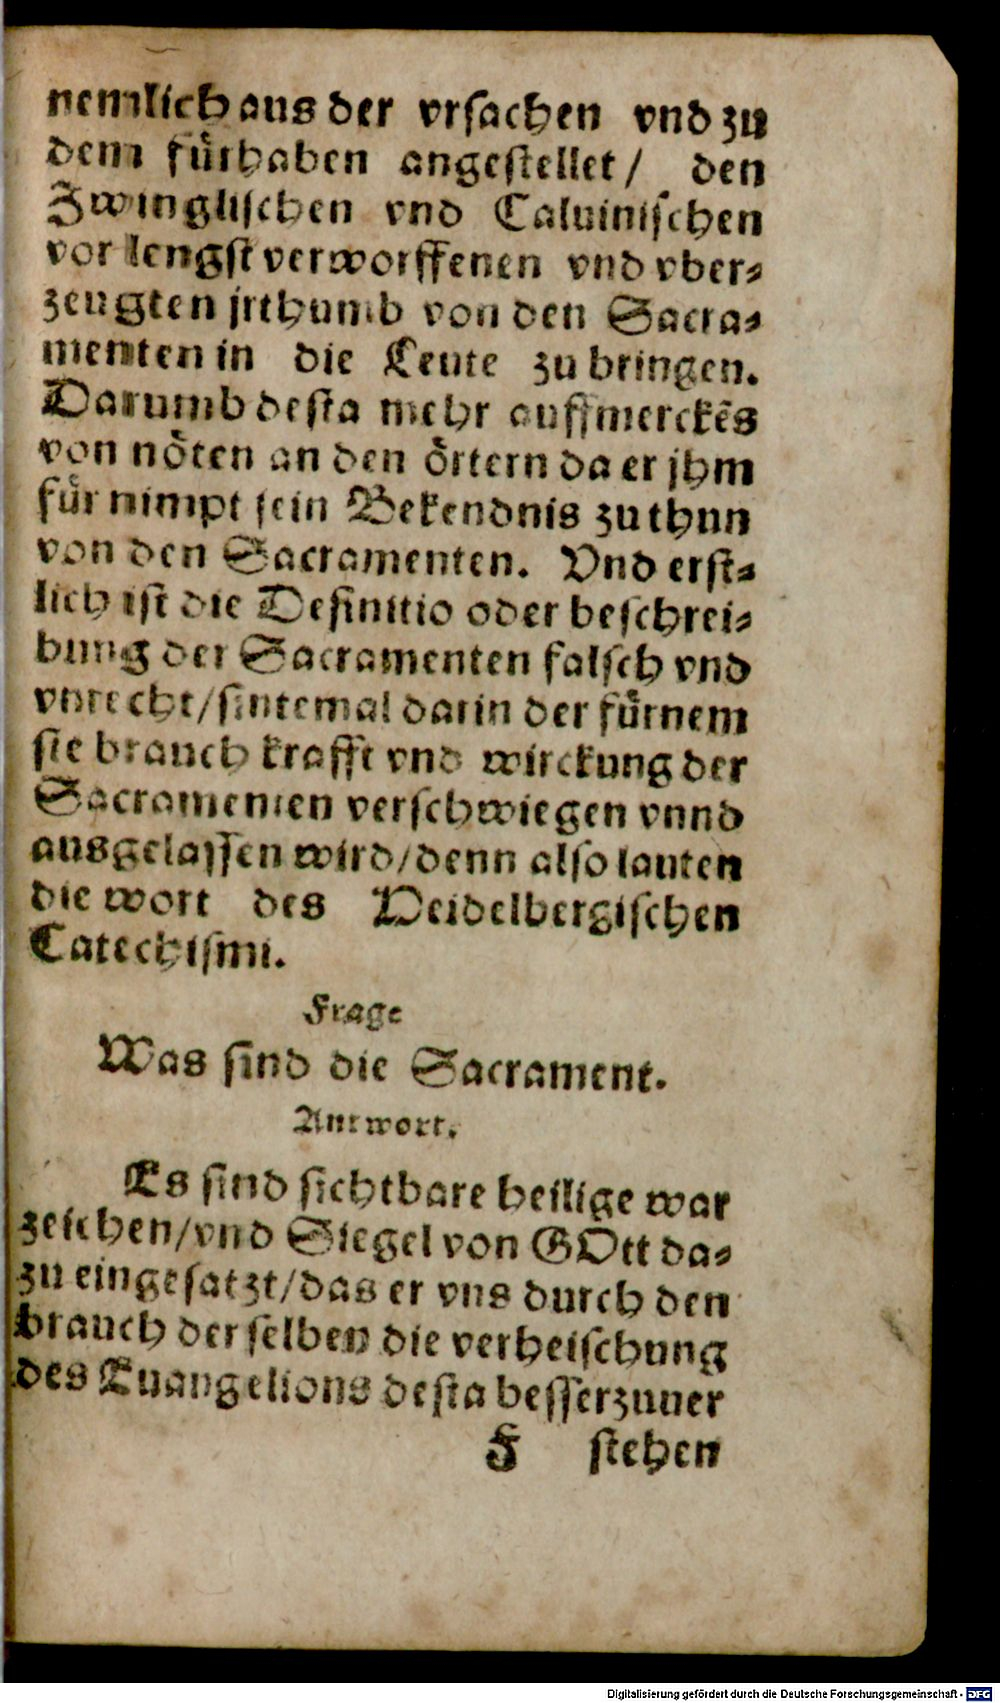 nemlich aus der vrsachen vnd zu
dem fürhaben angestellet / den
Zwinglischen vnd Caluinischen
vor lengst verworffenen vnd vber⸗
zeugten jrthumb von den Sacra⸗
menten in die Leute zu bringen.
Darumb desta mehr auffmerckēs
von nöten an den örtern da er jhm
für nimpt sein Bekendnis zu thun
von den Sacramenten. Vnd erst⸗
lich ist die Definitio oder beschrei⸗
bung der Sacramenten falsch vnd
vnrecht / sintemal darin der fürnem
ste brauch krafft vnd wirckung der
Sacramenten verschwiegen vnnd
ausgelassen wird / denn also lauten
die wort des Heidelbergischen
Catechismi.
Frage
Was sind die Sacrament.
Antwort.
Es sind sichtbare heilige war
zeichen / vnd Siegel von GOtt da⸗
zu eingesatzt / das er vns durch den
brauch der selben die verheischung
des Euangelions desta besser zuuer
F stehen
Digitalisierung gefördert durch die Deutsche Forschungsgemeinschaft - DFG